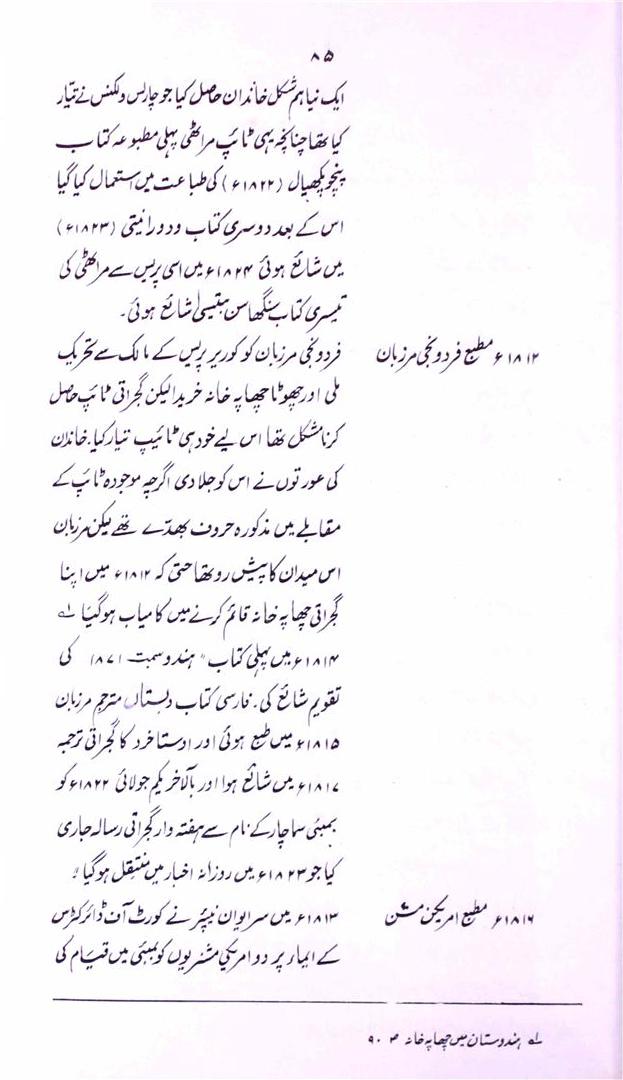 ۸۵
ایک نیا ہم شکل خاندان حاصل کیا جو چارلس ولکنس نے تیار
کیا تھا چنانچہ یہی ٹائپ مراٹھی پہلی مطبوعہ کتاب
پنچوپکھیال (۱۸۲۲ء) کی طباعت میں استعمال کیا گیا
اس کے بعد دوسری کتاب ودورانیتی (۱۸۲۳ء)
میں شائع ہوئی ۱۸۲۴ء میں اسی پریس سے مراٹھی کی
تیسری کتاب سنگھاسن بتیسی شائع ہوئی۔
۱۸۱۲ء مطبع فردونجی مرزبان
فردونجی مرزبان کو کوریر پریس کے مالک سے تحریک
ملی اور چھوٹا چھاپہ خانہ خریدا لیکن گجراتی ٹائپ حاصل
کرنا مشکل تھا اس لیے خود ہی ٹائیپ تیار کیا۔ خاندن
کی عورتوں نے اس کو جلا دی اگرچہ موجودہ ٹائپ کے
مقابلے میں مذکورہ حروف بھدّے تھے لیکن مرزبان
اس میدان کا پیش رو تھا حتی کہ ۱۸۱۲ء میں اپنا
گجراتی چھاپہ خانہ قائم کرنے میں کامیاب ہوگیا لے
۱۸۱۴ء میں پہلی کتاب "ہندو سمبت ۱۸۷۱ کی
تقویم شائع کی۔ فارسی کتاب دبستاں مترجم مرزبان
۱۸۱۵ء میں طبع ہوئی اور اوستا خرد کا گجراتی ترجمہ
۱۸۱۷ء میں شائع ہوا اور بالآخر یکم جولائی ۱۸۲۲ء کو
بمبئی سماچار کے نام سے ہفتہ وار گجراتی رسالہ جاری
کیا جو ۱۸۲۳ء میں روزانہ اخبار میں منتقل ہوگیا؛
۱۸۱۶ء مطبع امریکن مشن
۱۸۱۳ء میں سرایوان نیپئر نے کورٹ آف ڈائرکٹرس
کے ایماء پر دو امریکی مشنریوں کو بمبئی میں قیام کی
لے ہندوستان میں چھاپہ خانہ ص ۹۰